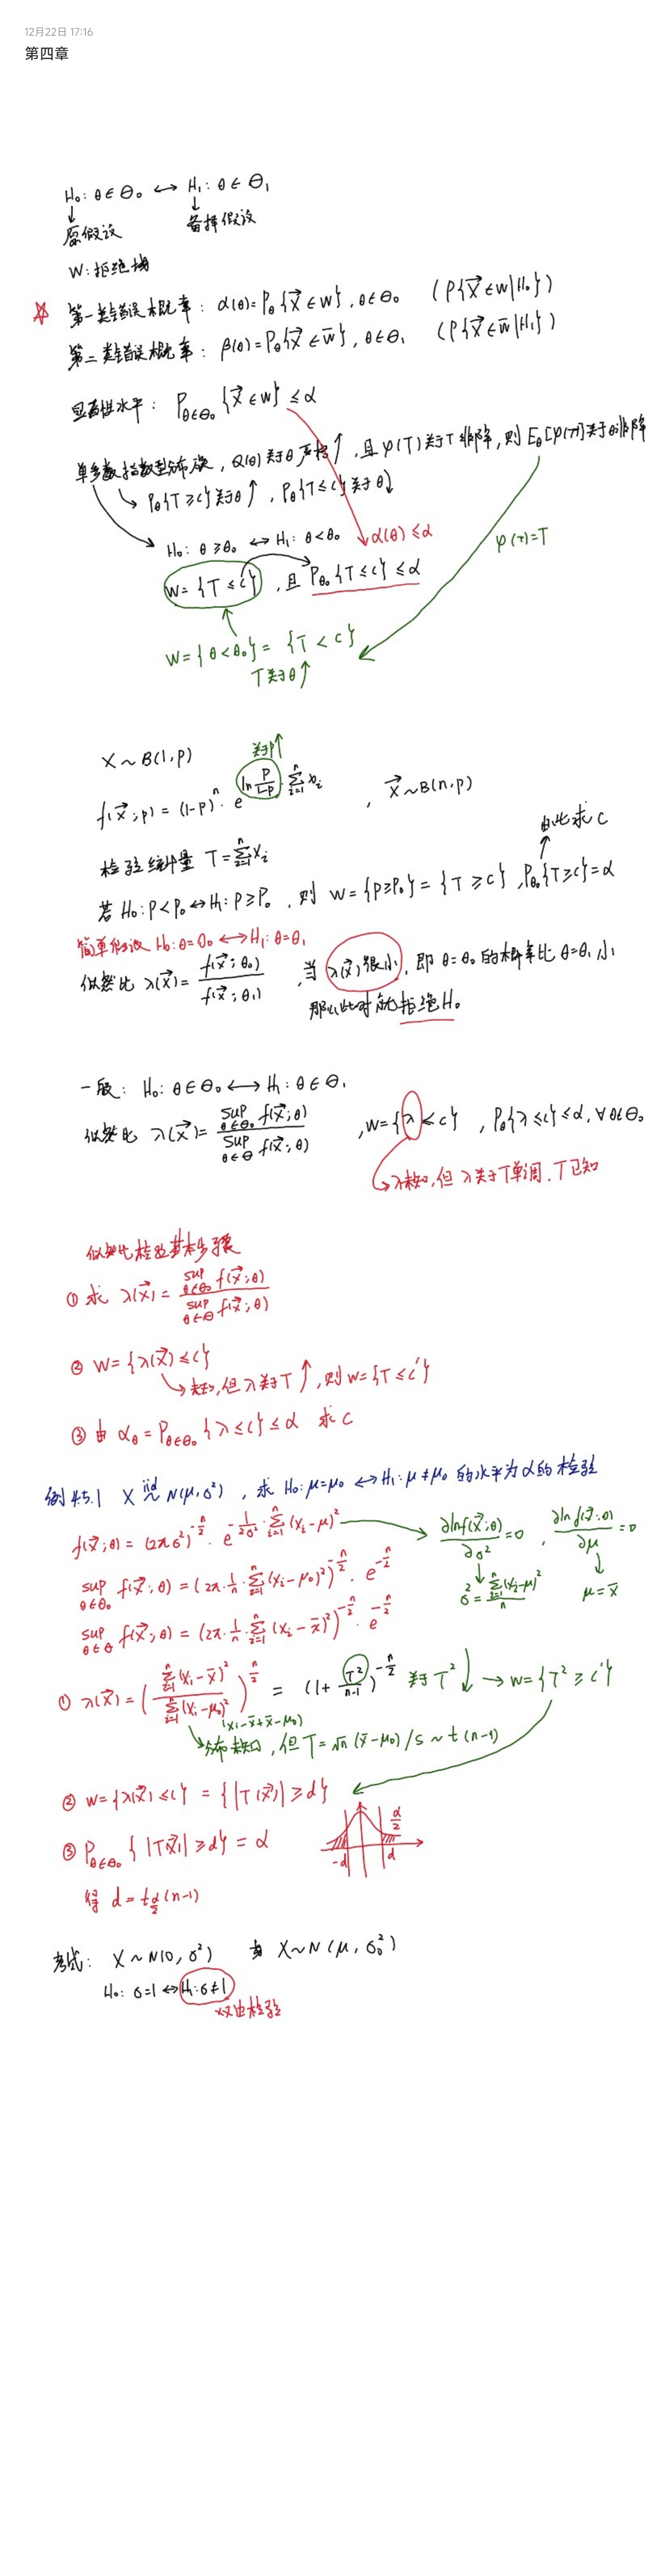 12月22日 17:16
第四章
H₀: θ∈Θ₀ ↔ H₁: θ∈Θ₁
↓ ↓
原假设 备择假设
W: 拒绝域
☆ 第一类错误概率: α(θ)=P_θ{X⃗∈W}, θ∈Θ₀ (P{X⃗∈W|H₀})
第二类错误概率: β(θ)=P_θ{X⃗∈W̄}, θ∈Θ₁ (P{X⃗∈W̄|H₁})
显著性水平: P_{θ∈Θ₀}{X⃗∈W} ≤ α
单参数指数型分布族, Q(θ)关于θ严格↑, 且φ(T)关于T非降, 则E_θ[φ(T)]关于θ非降
↘ P_θ{T≥c}关于θ↑, P_θ{T≤c}关于θ↓
H₀: θ≥θ₀ ↔ H₁: θ<θ₀
α(θ)≤α
φ(T)=T
W={T≤c}, 且 P_{θ₀}{T≤c}≤α
W={θ<θ₀}={T<c}
T关于θ↑
X~B(1,p)
关于p↑
f(X⃗;p)=(1-p)ⁿ·e^{ln p/(1-p) · Σ_{i=1}^n x_i}, X⃗~B(n,p)
由此求c
检验统计量 T=Σ_{i=1}^n x_i
若H₀: P<P₀ ↔ H₁: P≥P₀, 则 W={P≥P₀}={T≥c}, P_{θ₀}{T≥c}=α
简单假设 H₀: θ=θ₀ ↔ H₁: θ=θ₁
似然比 λ(X⃗)=f(X⃗;θ₀)/f(X⃗;θ₁), 当λ(X⃗)很小, 即θ=θ₀的概率比θ=θ₁小
那么此时就拒绝H₀
一般: H₀: θ∈Θ₀ ↔ H₁: θ∈Θ₁
似然比 λ(X⃗)=sup_{θ∈Θ₀} f(X⃗;θ) / sup_{θ∈Θ} f(X⃗;θ), W={λ≤c}, P_θ{λ≤c}≤α, ∀θ∈Θ₀
λ未知, 但λ关于T单调, T已知
似然比检验基本步骤
① 求 λ(X⃗)=sup_{θ∈Θ₀} f(X⃗;θ) / sup_{θ∈Θ} f(X⃗;θ)
② W={λ(X⃗)≤c}
↘ 未知, 但λ关于T↑, 则W={T≤c'}
③ 由 α_θ=P_{θ∈Θ₀}{λ≤c}≤α 求c
例4.5.1 X iid~ N(μ,σ²), 求H₀: μ=μ₀ ↔ H₁: μ≠μ₀的水平为α的检验
f(X⃗;θ)=(2πσ²)^{-n/2}·e^{-1/(2σ²)·Σ_{i=1}^n(x_i-μ)²} → ∂lnf(X⃗;θ)/∂σ²=0, ∂lnf(X⃗;θ)/∂μ=0
sup_{θ∈Θ₀} f(X⃗;θ)=(2π·1/n·Σ_{i=1}^n(x_i-μ₀)²)^{-n/2}·e^{-n/2}
σ²=Σ_{i=1}^n(x_i-μ)²/n μ=x̄
sup_{θ∈Θ} f(X⃗;θ)=(2π·1/n·Σ_{i=1}^n(x_i-x̄)²)^{-n/2}·e^{-n/2}
① λ(X⃗)=(Σ_{i=1}^n(x_i-x̄)²/Σ_{i=1}^n(x_i-μ₀)²)^{n/2} = (1+T²/(n-1))^{-n/2} 关于T²↓ → W={T²≥c'}
(x_i-x̄+x̄-μ₀)
↘ 分布未知, 但T=√n(x̄-μ₀)/S~t(n-1)
② W={λ(X⃗)≤c}={|T(X⃗)|≥d}
③ P_{θ∈Θ₀}{|T(X⃗)|≥d}=α
α/2
-d d
得 d=t_{α/2}(n-1)
考试: X~N(0,σ²) X~N(μ,σ₀²)
H₀: σ=1 ↔ H₁: σ≠1
双边检验